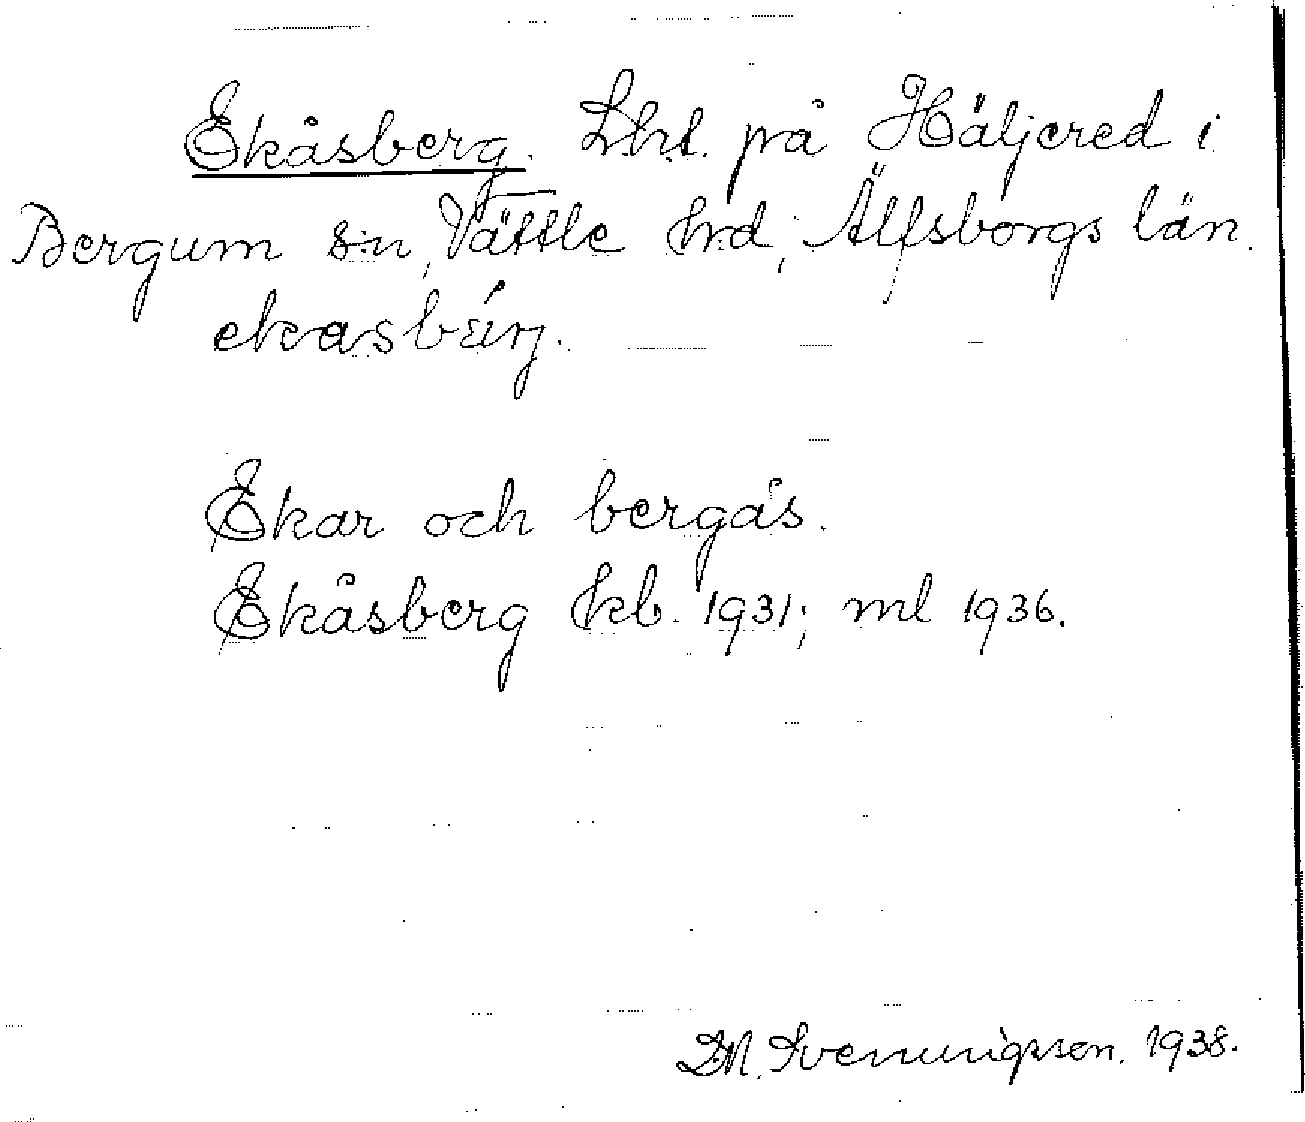 Ekåsberg. Lht. på Häljered i
Bergum sn, Vättle hrd, Älfsborgs län.
Ekar och bergås.
Ekåsberg kb. 1931; ml 1936.
1938.